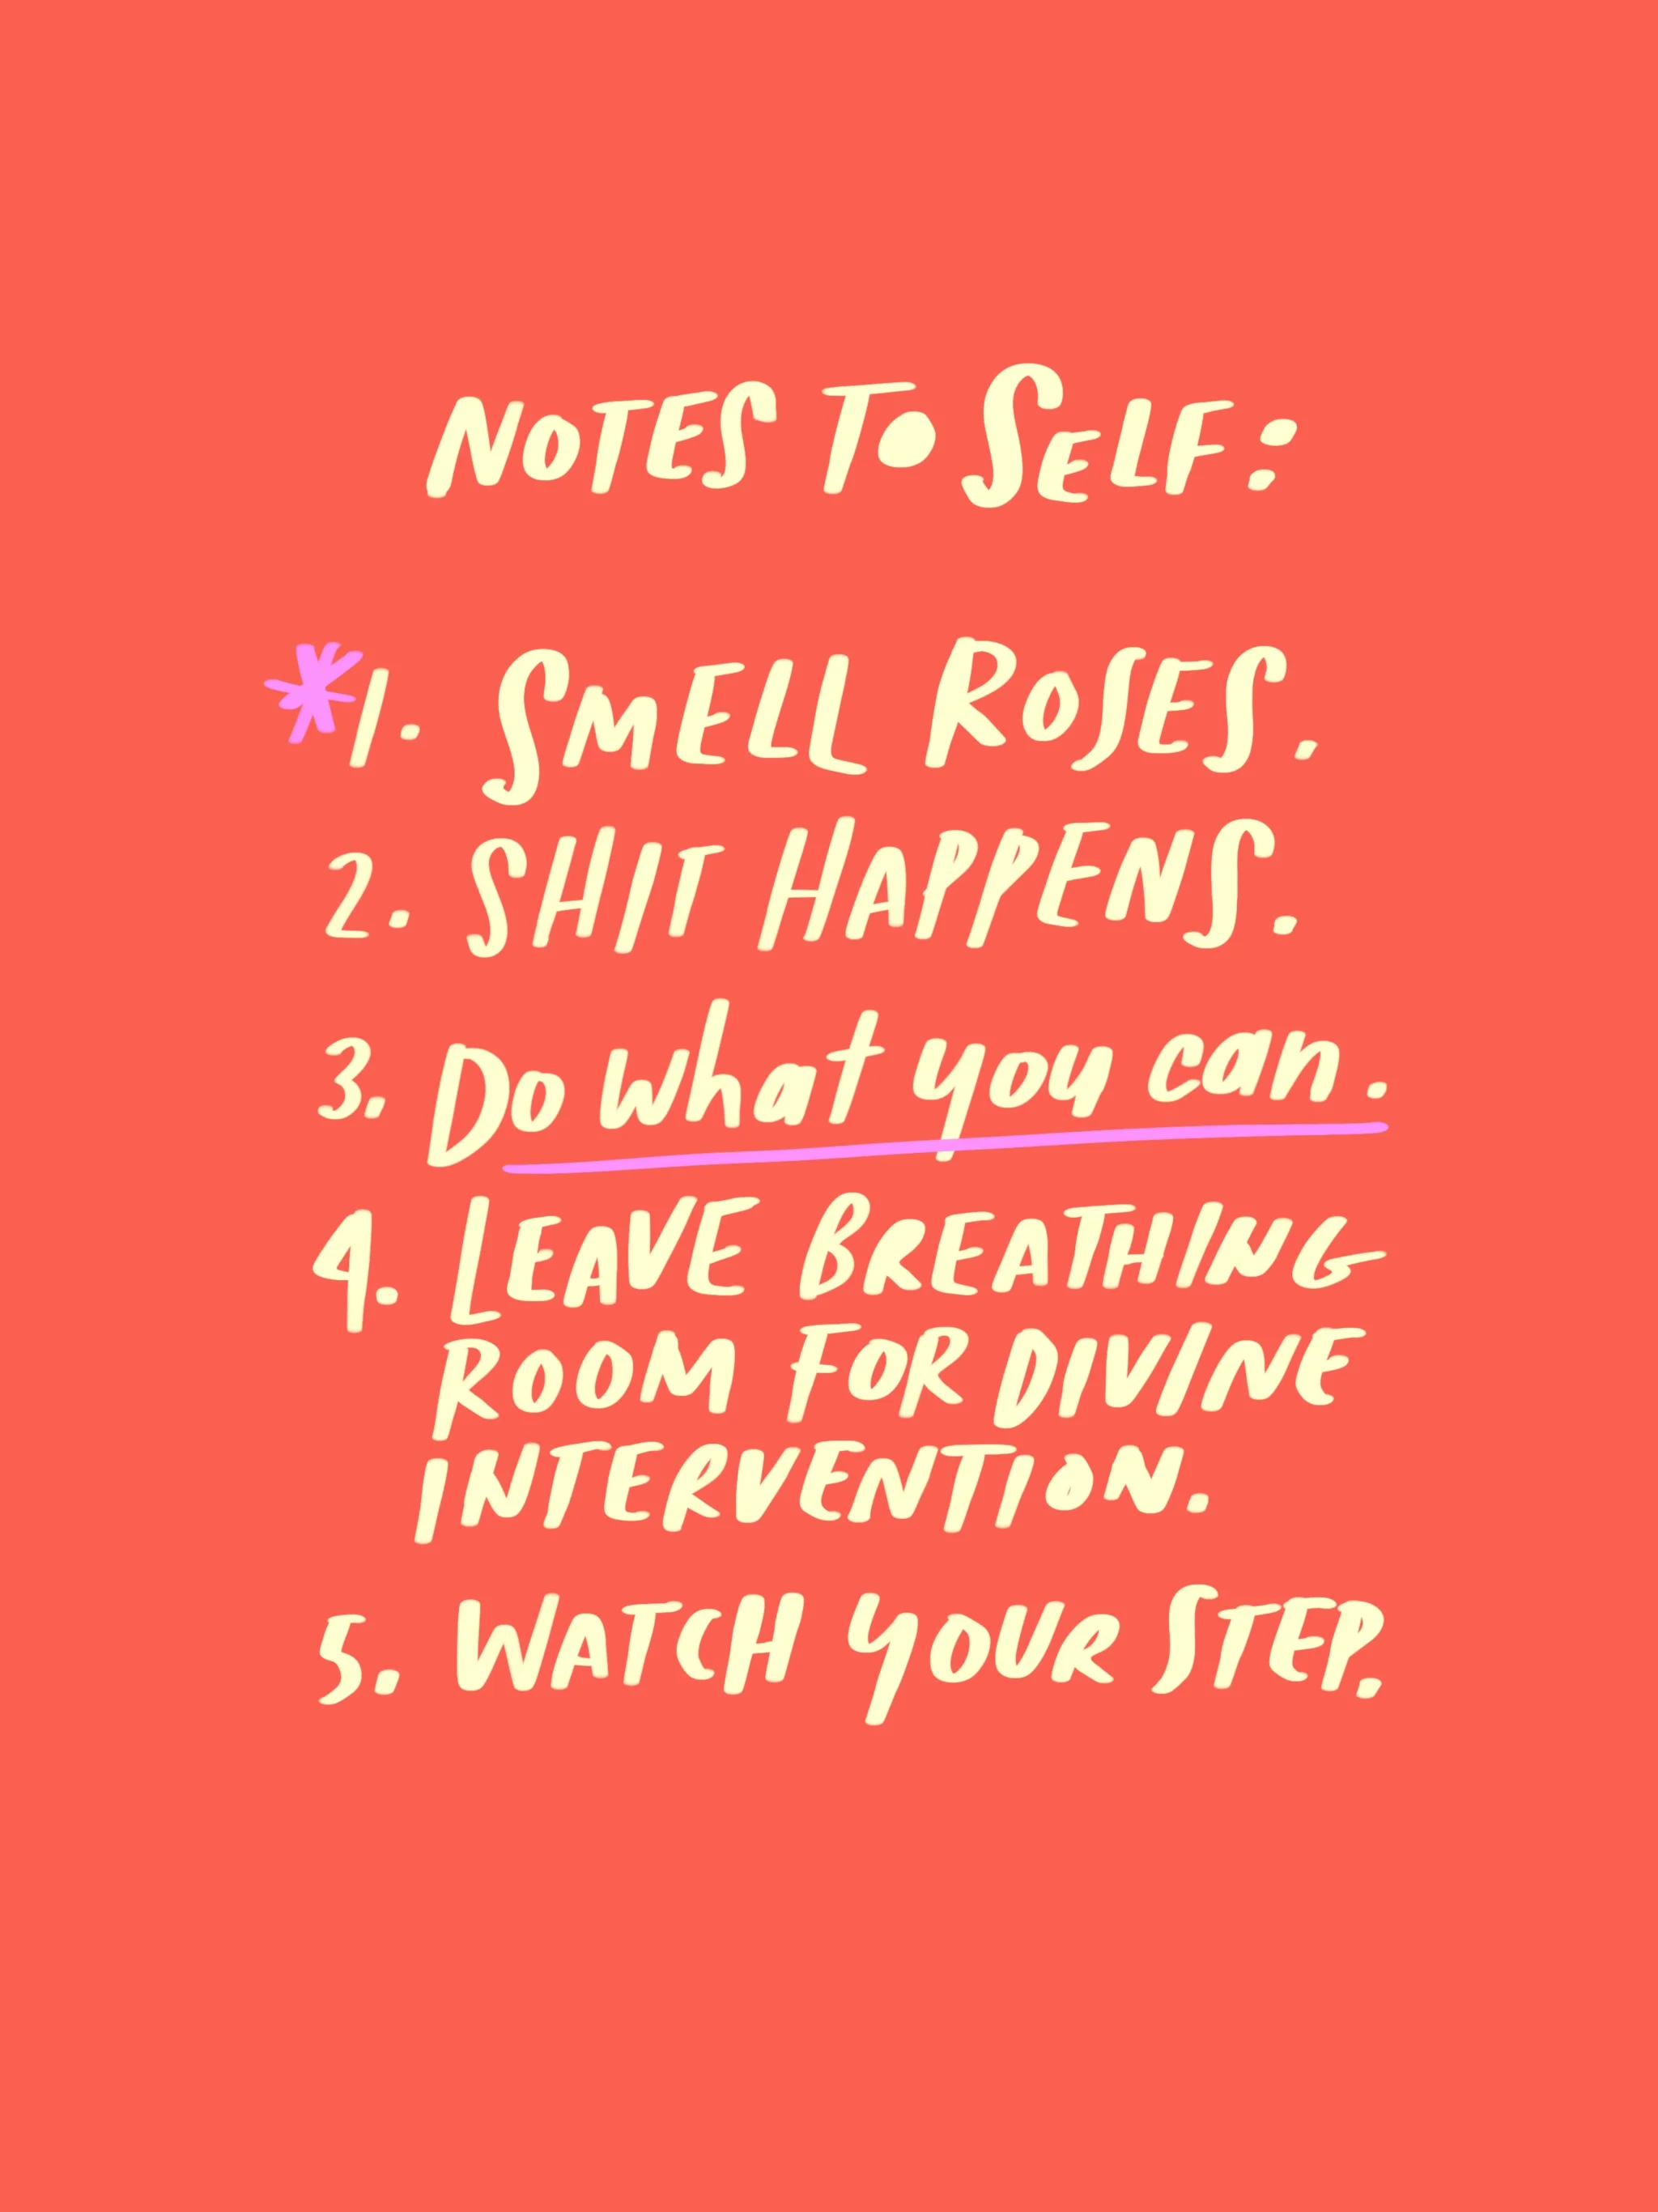 NOTES TO SELF:
*1. SMELL ROSES.
2. SHIT HAPPENS.
3. Do what you can.
4. LEAVE BREATHING
ROOM FOR DIVINE
INTERVENTION.
5. WATCH YOUR STEP.